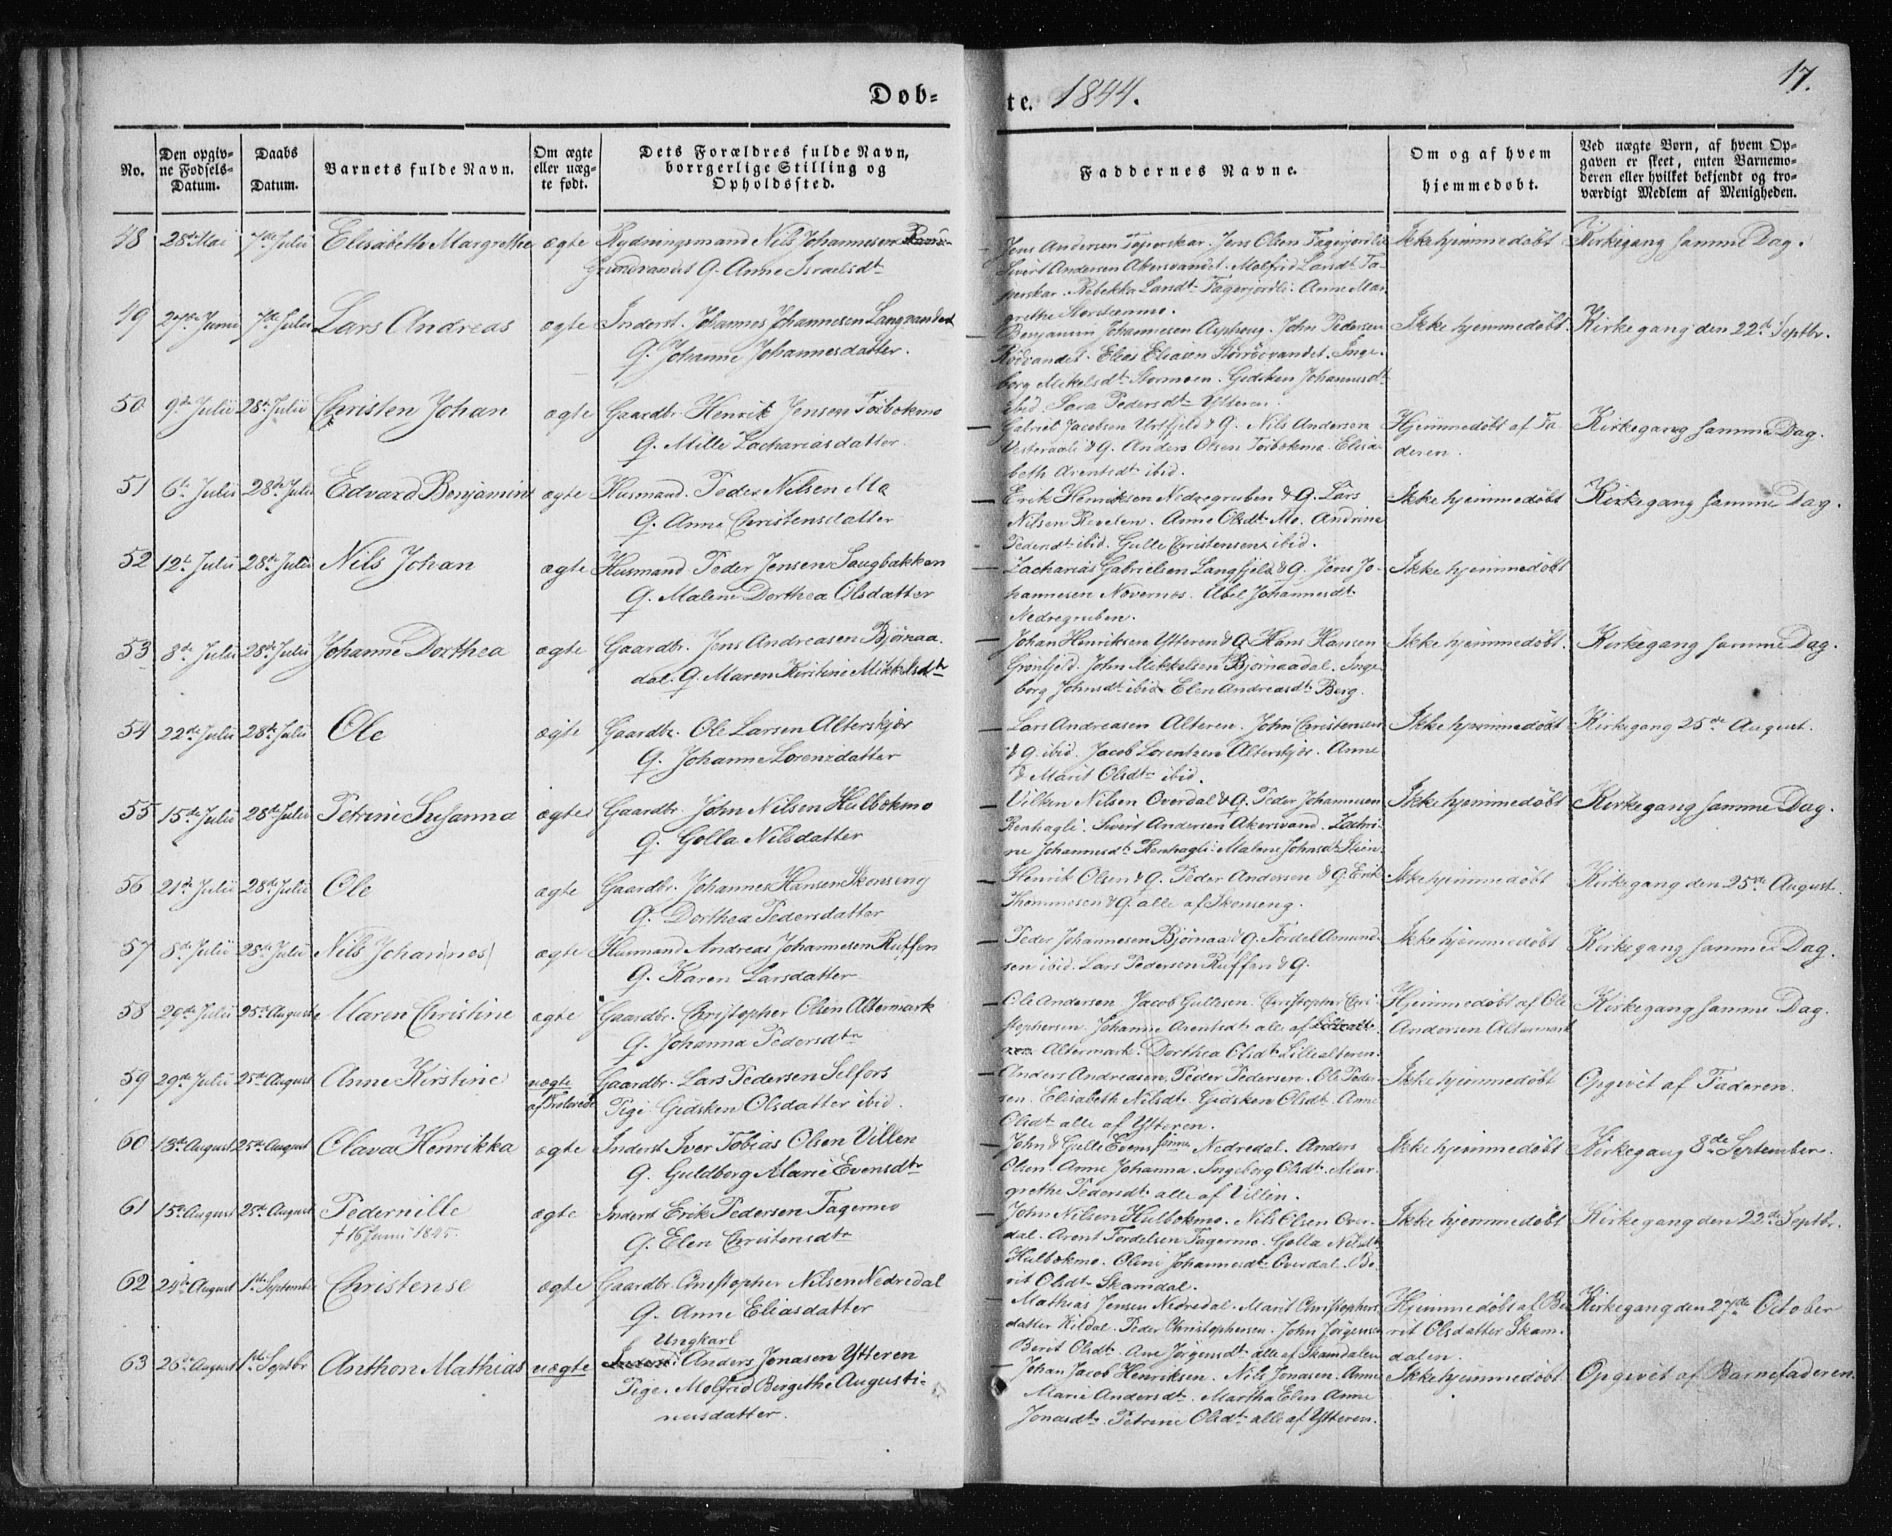 Døb-
te. 1844.
17.
No.
Den opgiv-
ne Fødsels-
Datum.
Daabs
Datum.
Barnets fulde Navn.
Om ægte
eller uæg-
te født.
Dets Forældres fulde Navn,
borrgerlige Stilling og
Opholdssted.
Faddernes Navne.
Om og af hvem
hjemmedøbt.
Ved uægte Børn, af hvem Op-
gaven er skeet, enten Barnemo-
deren eller hvilket bekjendt og tro-
værdigt Medlem af Menigheden.
48 28de Mai 7de Julii Elisabeth Margrethe ægte Rydningsmand Nils Johannesen
Grundvandet G. Anne Israelsdt
Jens Andersen Tøperskar. Jens Olsen Fagerjordlie
Sivert Andersen Akersvandet. Molfrid Larsdt Tø-
perskar. Rebekka Larsdt Fagerjordli. Anne Mar-
grethe Storstenmo.
Ikke hjemmedøbt Kirkegang samme Dag.
49 27de Junii 7de Julii Lars Andreas ægte Inderst. Johannes Johannesen Langvandet
G. Johanne Johannesdatter.
Benjamin Johannesen Asphoug. John Pedersen
Rødvandet. Elias Eliasen Storrødvandet. Inge-
borg Mikelsdt Stormoen. Gidsken Johannesdt
ibid. Sara Pedersdt Ytteren.
Ikke hjemmedøbt. Kirkegang den 22de Septbr.
50 9de Julii 28de Julii Christen Johan ægte Gaardbr. Henrik Jensen Toibokmo
G. Mille Zachariasdatter.
Gabriel Jacobsen Urtfjeld & G. Nils Andersen
Vesteraali & G. Anders Olsen Toibokmo. Elisa-
beth Arentsdt ibid.
Hjemmedøbt af Fa-
deren.
Kirkegang samme Dag.
51 6te Julii 28de Julii Edvard Benjamin ægte Husmand. Peder Nilsen Mo
G. Anne Christensdatter
Erik Henriksen Nedregruben & G. Lars
Nilsen Revelen. Anne Olsdt Mo. Andrine
Pedersdt ibid. Gulle Christensen ibid.
Ikke hjemmedøbt Kirkegang samme Dag.
52 12te Julii 28de Julii Nils Johan ægte Husmand Peder Jensen Saugbakken
G. Malene Dorthea Olsdatter
Zacharias Gabrielsen Langfjeld & G. Jens Jo-
hannesen Novernes. Abel Johannesdt
Nedregruben.
Ikke hjemmedøbt
53 8de Julii 28de Julii Johanne Dorthea ægte Gaardbr. Jens Andreasen Bjørnaa-
dal. G. Maren Kirstine Mikkelsdt
Johan Henriksen Ytteren & G. Hans Hansen
Grønfjeld. John Mikkelsen Bjørnaadal. Inge-
borg Johnsdt ibid. Elen Andreasdt Berg.
Ikke hjemmedøbt. Kirkegang samme Dag.
54 22de Julii 28de Julii Ole ægte Gaardbr. Ole Larsen Alterskjær
G. Johanne Lorenzdatter
Lars Andreasen Alteren. John Christensen
& G. ibid. Jacob Lorentsen Alterskjær. Anne
& Marit Olsdt ibid.
Ikke hjemmedøbt Kirkegang 25de August.
55 15de Julii 28de Julii Petrine Susanna ægte Gaardbr. John Nilsen Hulbokmo
G. Golla Nilsdatter
Vilken Nilsen Overdal & G. Peder Johannesen
Renhagli. Sivert Andersen Akersvand.
ne Johannesdt Renhagli. Malene Johnsdt
Ikke hjemmedøbt Kirkegang samme Dag.
56 21de Julii 28de Julii Ole ægte Gaardbr. Johannes Hansen Skonseng
G. Dorthea Pedersdatter
Henrik Olsen & G. Peder Andersen & G. Erik
Thommesen & G. alle af Skonseng.
Ikke hjemmedøbt Kirkegang den 25de August.
57 8de Julii 28de Julii Nils Johannes ægte Husmand Andreas Johannesen Ruffen
G. Karen Larsdatter
Peder Johannesen Bjørnaa & G. Tordel Amund-
sen ibid. Lars Pedersen Ruffen & G.
Ikke hjemmedøbt Kirkegang samme Dag.
58 20de Julii 25de August Maren Christine ægte Gaardbr. Christopher Olsen Altermark
G. Johanna Pedersdtr
Ole Andersen. Jacob Gullesen. Christopher Cri-
stophersen. Johanne Arentsdt alle af
Altermark. Dorthea Olsdt Lillealteren.
Hjemmedøbt af Ole
Andersen Altermark
Kirkegang samme Dag.
59 29de Julii 25de August Anne Kirstine uægte Gaardbr. Lars Pedersen Selfors
Pige Gidsken Olsdatter ibid.
Anders Andreasen. Peder Pedersen. Ole Peder-
sen. Elisabeth Nilsdt. Gidsken Olsdt. Anne
Olsdt alle af Ytteren.
Ikke hjemmedøbt Opgivet af Faderen.
60 13de August 25de August Olava Henrikka ægte Inderst Iver Tobias Olsen Villen
G. Guldborg Marie Evensdtr
John & Gulle Evens Nedredal. Anders
Olsen. Anne Johanna. Ingeborg Olsdt. Mar-
grethe Pedersdt alle af Villen.
Ikke hjemmedøbt Kirkegang 8de September.
61 15de August 25de August Pedernille ægte Inderst Erik Pedersen Fagermo
† 16 Junii 1845. G. Elen Christensdtr
John Nilsen Hulbokmo. Nils Olsen Over-
dal. Arent Tordelsen Fagermo. Golla Nilsdt
Hulbokmo. Oline Johannesdt Overdal. Be-
rit Olsdt Skamdal.
Ikke hjemmedøbt Kirkegang den 22de Septbr.
62 24de August 1ste September Christense ægte Gaardbr. Christopher Nilsen Nedredal
G. Anne Eliasdatter
Mathias Jensen Nedredal. Marit Christophers
datter Kildal. Peder Christophersen. John Jørgensen
Berit Olsdt. Ane Jørgensdt alle af Skamdalen
Hjemmedøbt af Be-
rit Olsdatter Skam-
dalen.
Kirkegang den 27de October
63 26de August 1ste Septbr Anthon Mathias uægte Ungkarl
Anders Jonasen Ytteren
Pige. Molfrid Bergithe Augusti-
nusdatter.
Johan Jacob Henriksen. Nils Jonasen. Anne
Marie Andersdt. Martha Elen Anne
Jonasdt. Petrine Olsdt alle af Ytteren.
Ikke hjemmedøbt Opgivet af Barnefaderen.